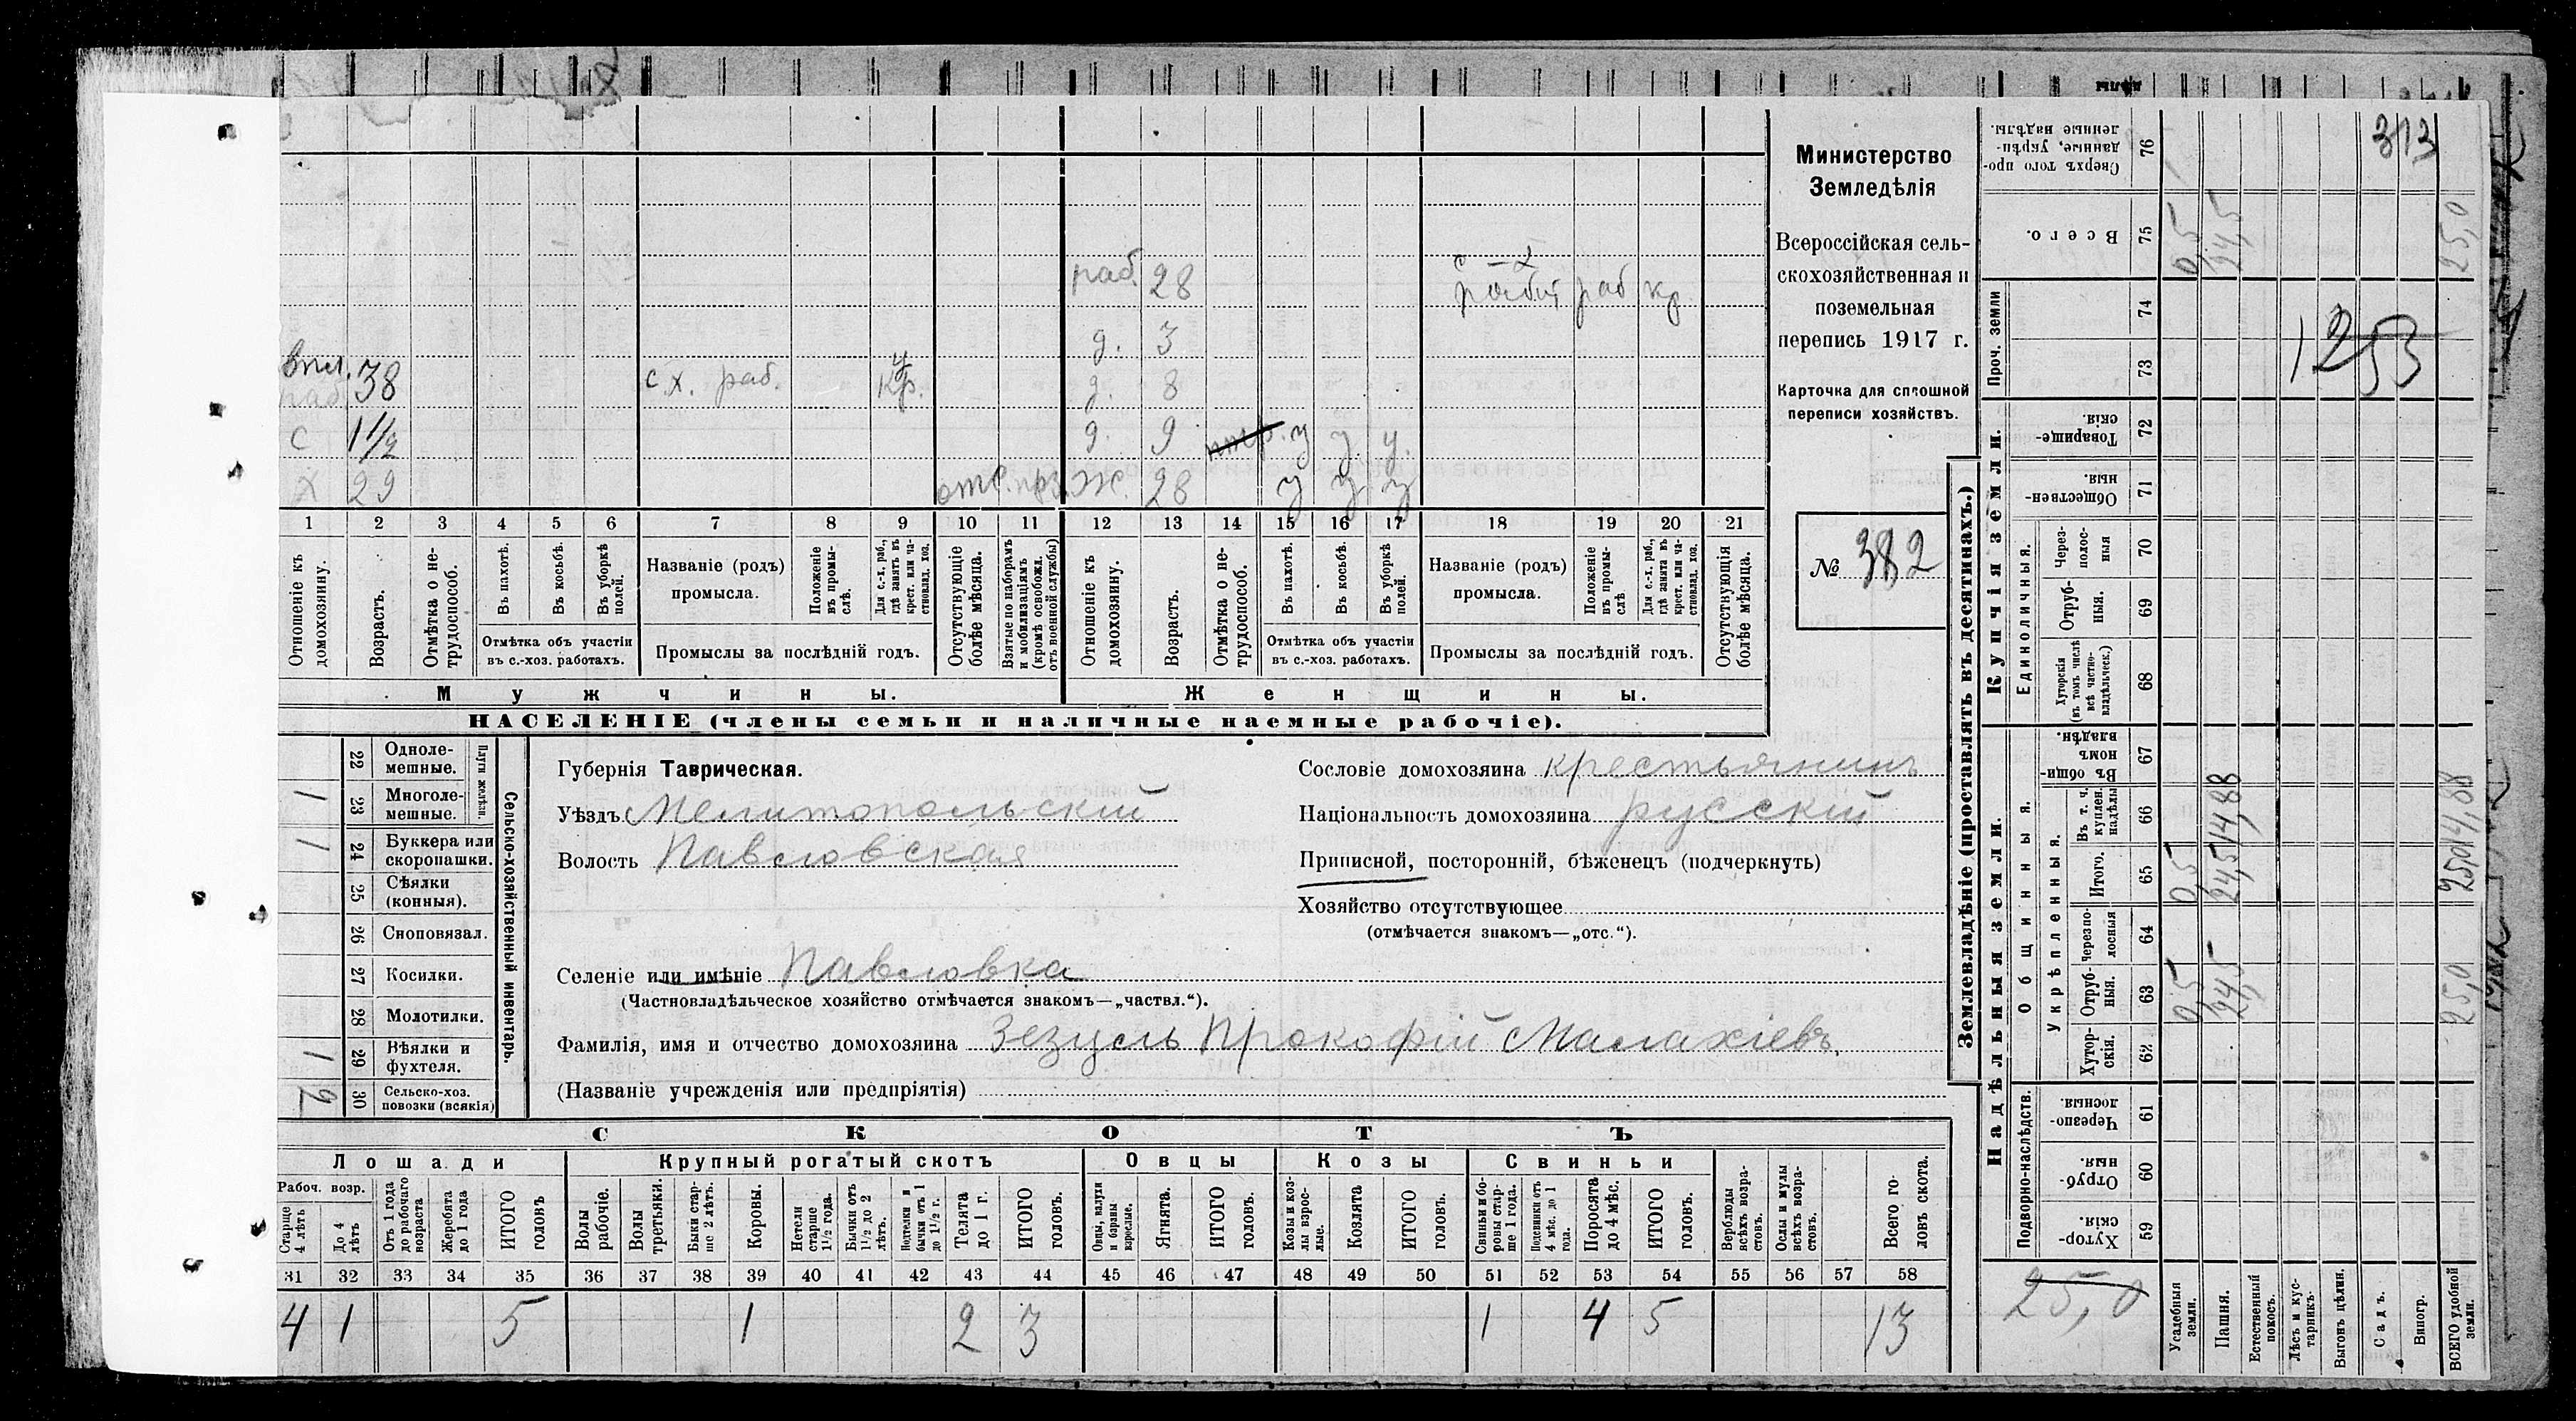 313
Министерство
Земледѣлія
Всероссійская сель-
скохозяйственная и
поземельная
перепись 1917 г.
Карточка для сплошной
переписи хозяйствъ.
№ 382
раб. 28 раб кр
д. 3
впл. 38 с х. раб. кр. д. 8
раб
с 1 1/2 д. 9 у у у.
х 29 отс. ж. 28 у у у
1 2 3 4 5 6 7 8 9 10 11 12 13 14 15 16 17 18 19 20 21
Отношеніе къ домохозяину.
Возрастъ.
Отмѣтка о не-трудоспособ.
Въ пахотѣ.
Въ косьбѣ.
Въ уборкѣ полей.
Отмѣтка объ участіи
въ с.-хоз. работахъ.
Названіе (родъ)
промысла.
Положеніе въ промы-слѣ.
Для с.-х. раб., гдѣ занятъ въ крест. или ча-стновлад. хоз.
Промыслы за послѣдній годъ.
Отсутствующіе болѣе мѣсяца.
Взятые по наборамъ и мобилизаціямъ (кромѣ освобожд. отъ военной службы)
Отношеніе къ домохозяину.
Возрастъ.
Отмѣтка о не-трудоспособ.
Въ пахотѣ.
Въ косьбѣ.
Въ уборкѣ полей.
Отмѣтка объ участіи
въ с.-хоз. работахъ.
Названіе (родъ)
промысла.
Положеніе въ промы-слѣ
Для с.-х. раб., гдѣ занята въ крест. или ча-стновлад. хоз.
Промыслы за послѣдній годъ.
Отсутствующія болѣе мѣсяца.
Мужчины. Женщины.
НАСЕЛЕНІЕ (члены семьи и наличные наемные рабочіе).
Сельско-хозяйственный инвентарь.
Плуги желѣзн.
22 Одноле-мешные.
1 23 Многоле-мешные.
1 24 Буккера или скоропашки.
25 Сѣялки (конныя).
26 Сноповязал.
27 Косилки.
28 Молотилки.
1 29 Вѣялки и фухтеля.
2 30 Сельско-хоз. повозки (всякія)
Губернія Таврическая.
Уѣздъ Мелитопольскій
Волость Павловская
Сословіе домохозяина крестьянинъ
Національность домохозяина русскій
Приписной, посторонній, бѣженецъ (подчеркнуть)
Хозяйство отсутствующее
(отмѣчается знакомъ—„отс.“).
Селеніе или имѣніе Павловка
(Частновладѣльческое хозяйство отмѣчается знакомъ—„частвл.“).
Фамилія, имя и отчество домохозяина Зезуль Прокофій Малахіевъ
(Названіе учрежденія или предпріятія)
СКОТЪ
Лошади Крупный рогатый скотъ Овцы Козы Свиньи
Рабоч. возр.
Старше 4 лѣтъ
До 4 лѣтъ
Отъ 1 года до рабочаго возраста
Жеребята до 1 года
ИТОГО головъ
Волы рабочіе.
Волы третьяки.
Быки стар-ше 2 лѣтъ.
Коровы.
Нетели старше 1 1/2 года.
Бычки отъ 1 1/2 до 2 лѣтъ.
Подтелки и бычки отъ 1 до 1 1/2 г.
Телята до 1 г.
ИТОГО головъ.
Овцы, валухи и бараны взрослые.
Ягнята.
ИТОГО головъ.
Козы и коз-лы взрос-лые.
Козлята
ИТОГО головъ.
Свиньи и бо-ровы стар-ше 1 года.
Подсвинки отъ 4 мѣс. до 1 года.
Поросята до 4 мѣс.
ИТОГО головъ.
Верблюды всѣхъ возра-стовъ.
Ослы и мулы всѣхъ возра-стовъ.
Всего го-ловъ скота.
31 32 33 34 35 36 37 38 39 40 41 42 43 44 45 46 47 48 49 50 51 52 53 54 55 56 57 58
4 1 5 1 2 3 1 4 5 13
Землевладѣніе (проставлять въ десятинахъ.)
Надѣльныя земли. Купчія земли. Проч. земли
Подворно-наслѣдств. Общинныя. Укрѣпленныя. Единоличныя.
Хутор-скія. 59
Отруб-ныя. 60
Черезпо-лосныя. 61
Хутор-скія. 62
Отруб-ныя. 63
Черезпо-лосныя 64
Итого. 65
Въ т. ч. куплен. надѣлы 66
Въ общи-номъ владѣн. 67
Хуторскія (въ томъ числѣ всѣ частно-владѣльческ.) 68
Отруб-ныя. 69
Через-полос-ныя 70
Обществен-ныя. 71
Товарище-скія 72
73
74
Всего. 75
Сверхъ того про-данные, укрѣп-ленные надѣлы. 76
25,0
Усадебныя земли. 0,5 0,5 0,5
Пашня. 24,5 24,5 14,88 24,5
Естественный покосъ.
Лѣсъ и кус-тарникъ.
Выгонъ цѣлин.
Садъ.
Виногр.
ВСЕГО удобной земли. 25,0 25,0 14,88 25,0
1253